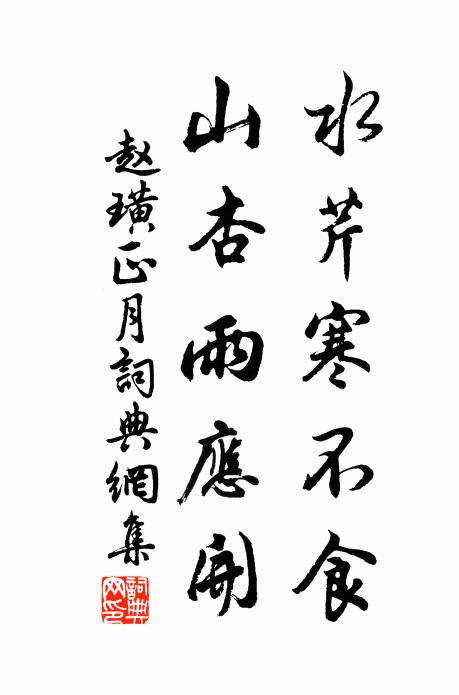 水芹寒不食
山杏雨應開
赵璜正月詞典網集
詞典网印